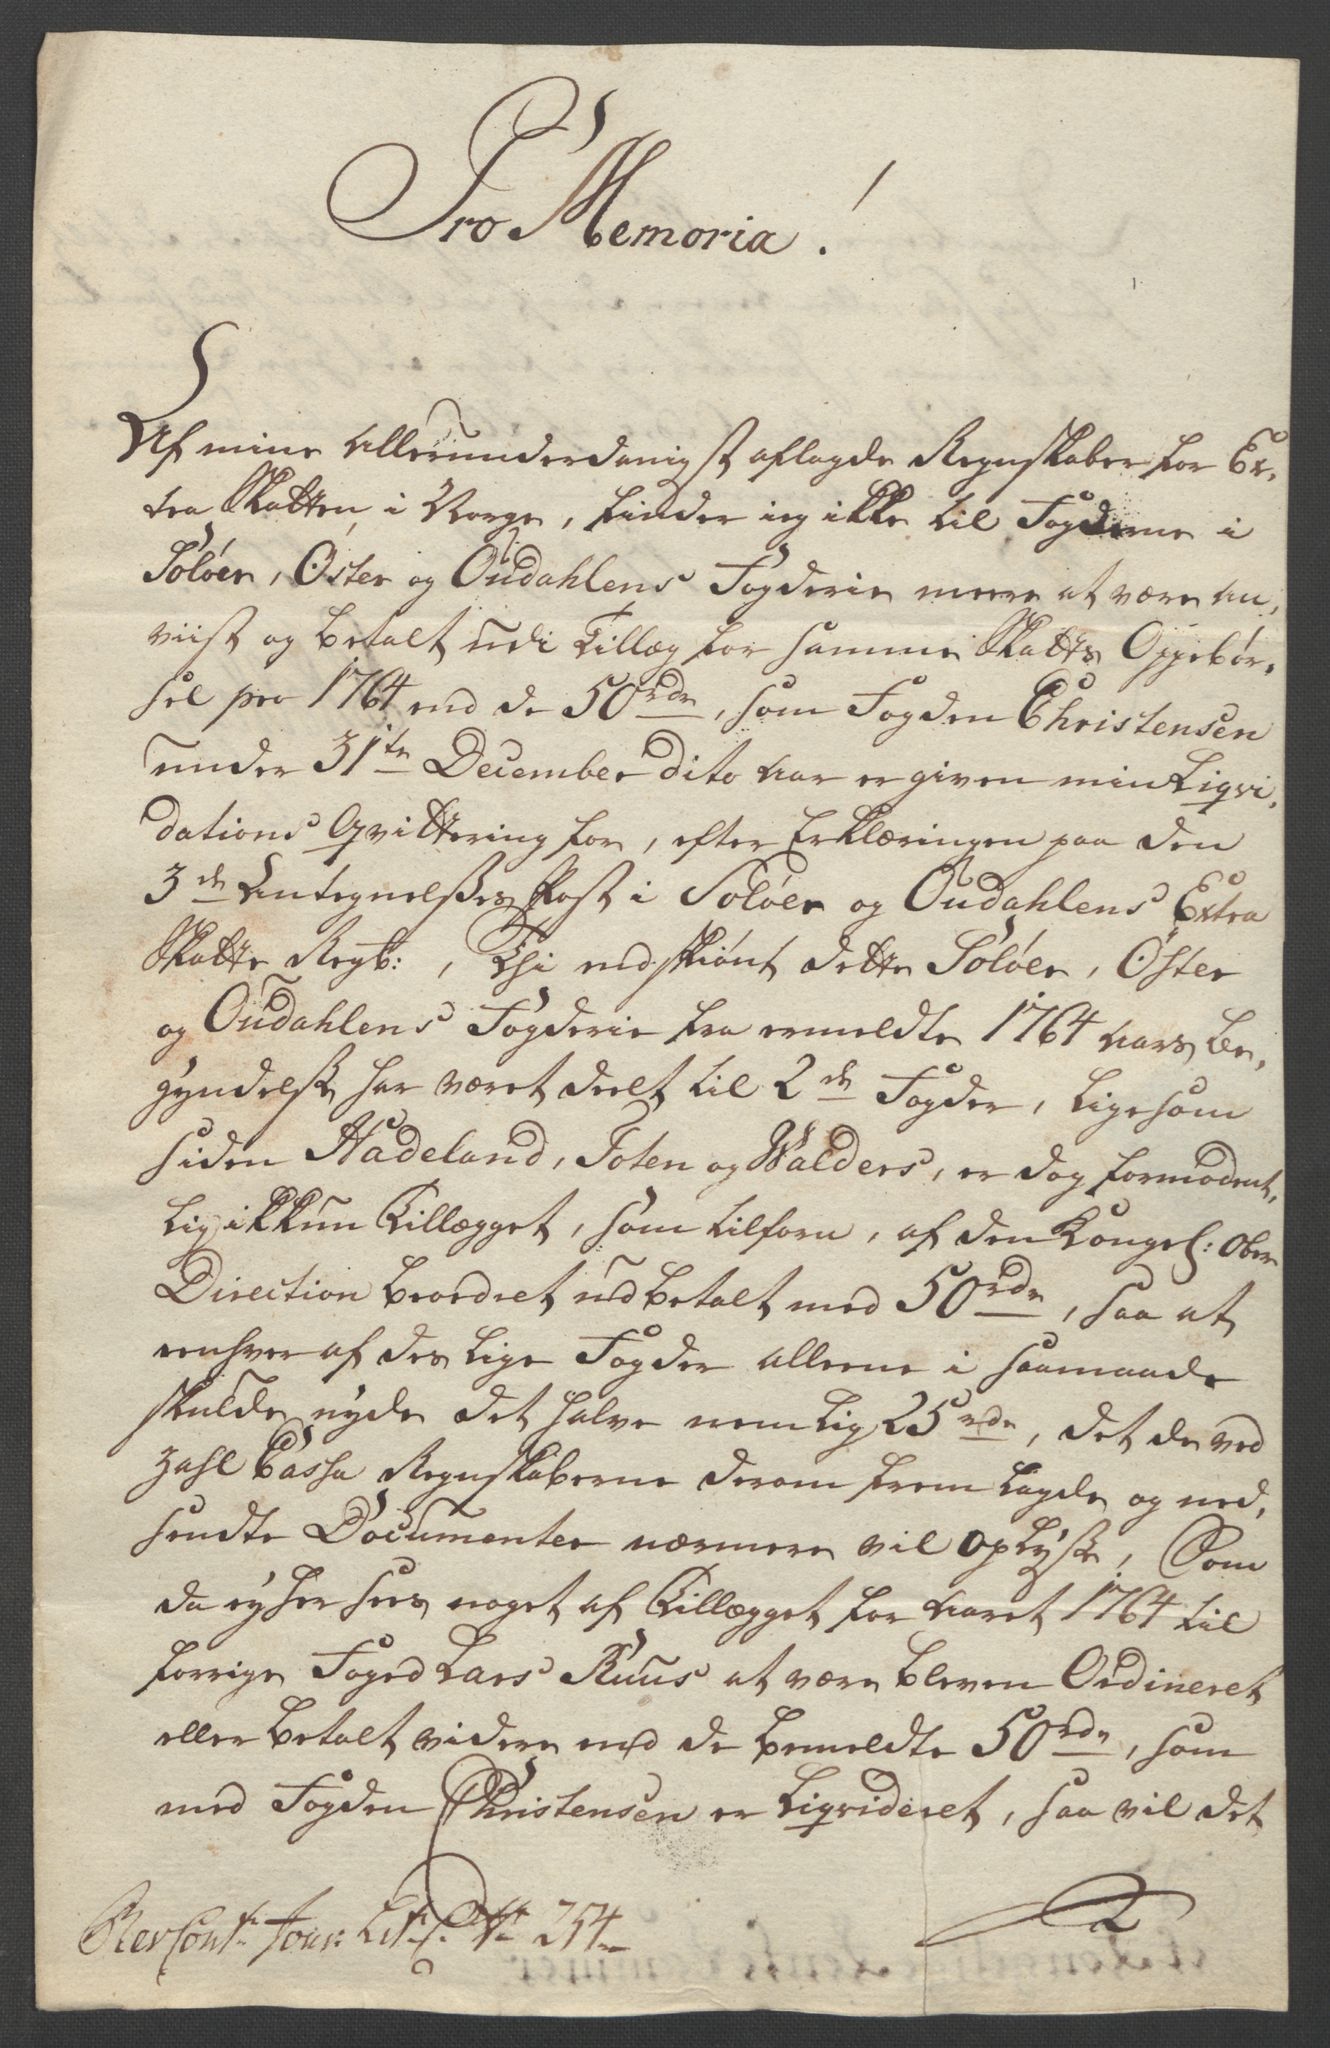 Pro Memoria!
Af mine Allerunderdanigst aflagde Regnskaber for Ex-
tra Skatten i Norge, finder ieg ikke til Fogderne i
Solöer, Öster og Oudahlens Fogderie meere at være an-
viist og betalt udi Tillæg for samme Skatts Oppebør-
sel pro 1764 end de 50 rdr, som Fogden Christensen
under 31te December dito aar er given min Liqvi-
dations Qvittering for, efter Erklæringen paa den
3de Antegnelses Post i Solöer og Oudahlens Extra
Skatte Regsk:, Thi endskiönt dette Solöer, Öster
og Oudahlens Fogderie fra ermeldte 1764 aars Be-
gyndelse har været deelt til 2de Fogder, ligesom
siden Hadeland, Toten og Walders, er dog formodent-
lig ikkun Tillægget, som tilforn, af den Kongel: Ober
Direction beordret udbetalt med 50 rdr, saa at
eenhver af des lige Fogder alleene i saamaade
skulde nyde det halve nemlig 25 rdr, det de ved
Zahl Cassa Regnskaberne derom fremlagde og ned-
sendte Documenter nærmere vil oplyse, Som
da ey her sees noget af Tillægget for Aaret 1764 til
forrige Foged Lars Ruus at være bleven Ordineret
eller betalt videre end de bemeldte 50 rdr, som
med Fogden Christensen er Liqvideret, saa vil det
Rev Cont: Jour: Litr: C. No 254